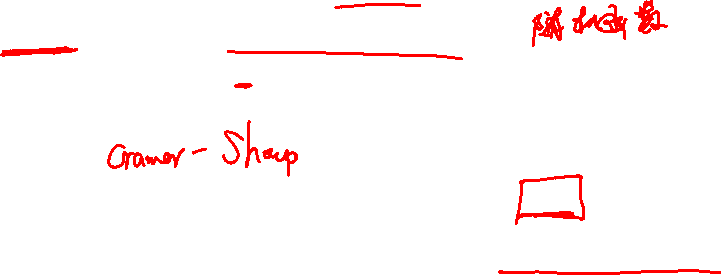 随机函数
Cramer - Sharp